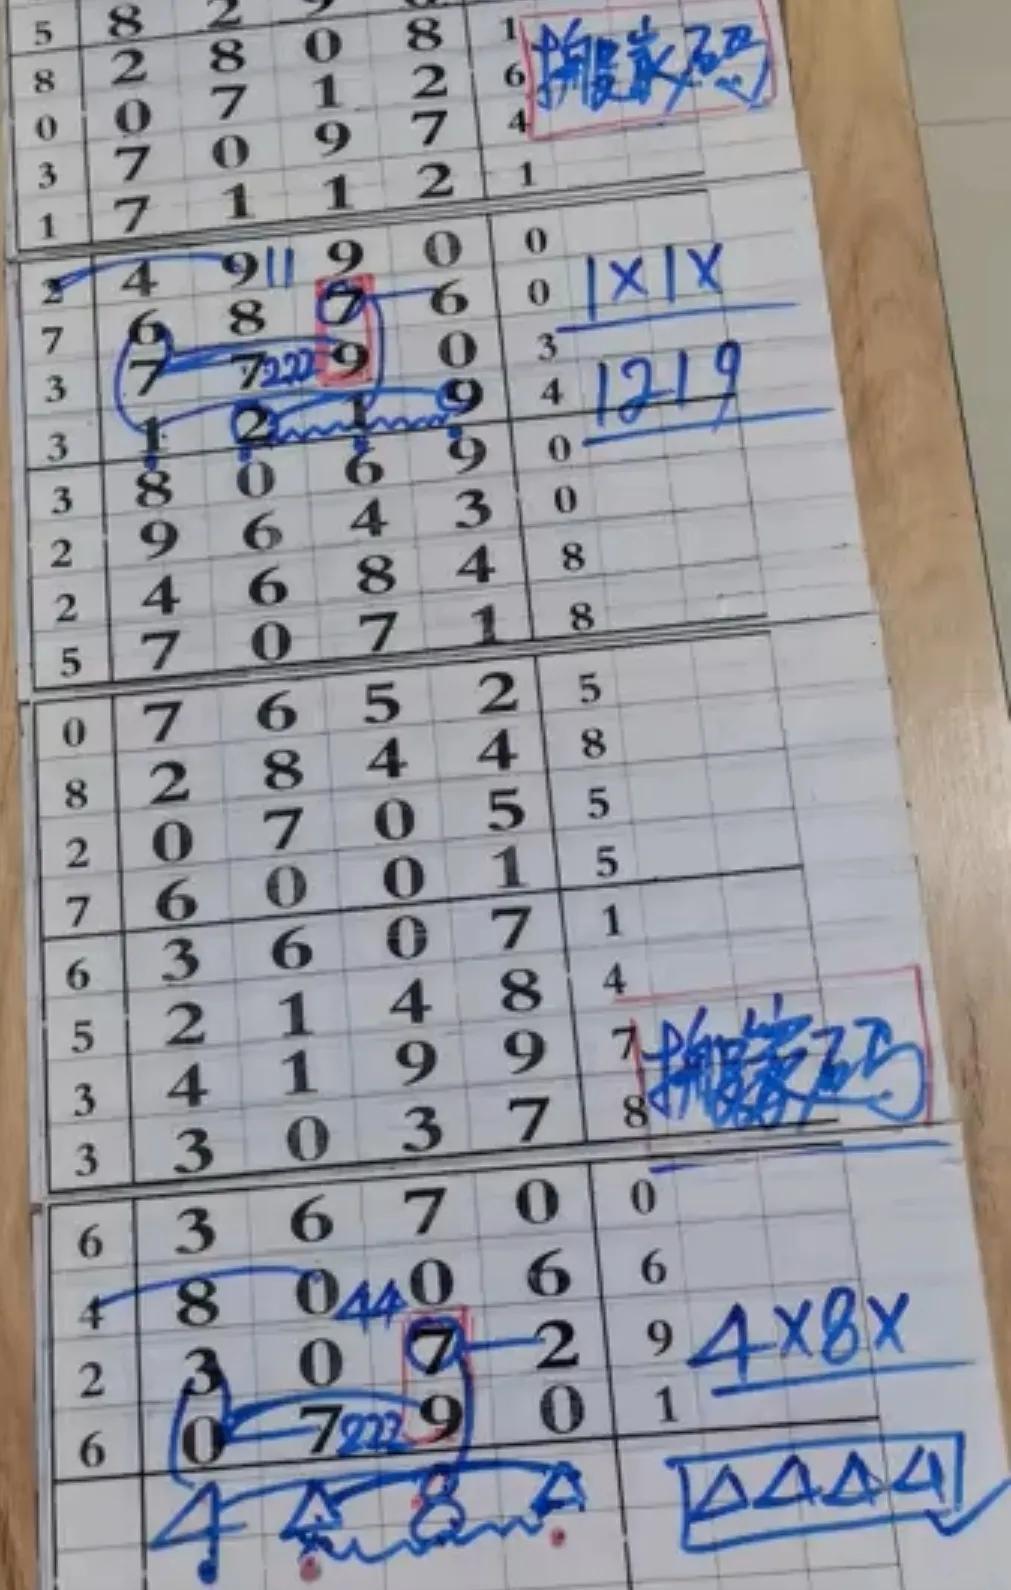 5 8 2 9
8 2 8 0 8 1
0 0 7 1 2 6
3 7 0 9 7 4
1 7 1 1 2 1
搬家码
2 4 9 11 9 0 0
7 6 8 7 6 0 1×1×
3 7 7 222 9 0 3
3 1 2 1 9 4 1219
3 8 0 6 9 0
2 9 6 4 3 0
2 4 6 8 4 8
5 7 0 7 1 8
0 7 6 5 2 5
8 2 8 4 4 8
2 0 7 0 5 5
7 6 0 0 1 5
6 3 6 0 7 1
5 2 1 4 8 4
3 4 1 9 9 7
3 3 0 3 7 8
搬家码
6 3 6 7 0 0
4 8 0 44 0 6 6
2 3 0 7 2 9 4×8×
6 0 7 222 9 0 1
4 △ 8 △ △△△△